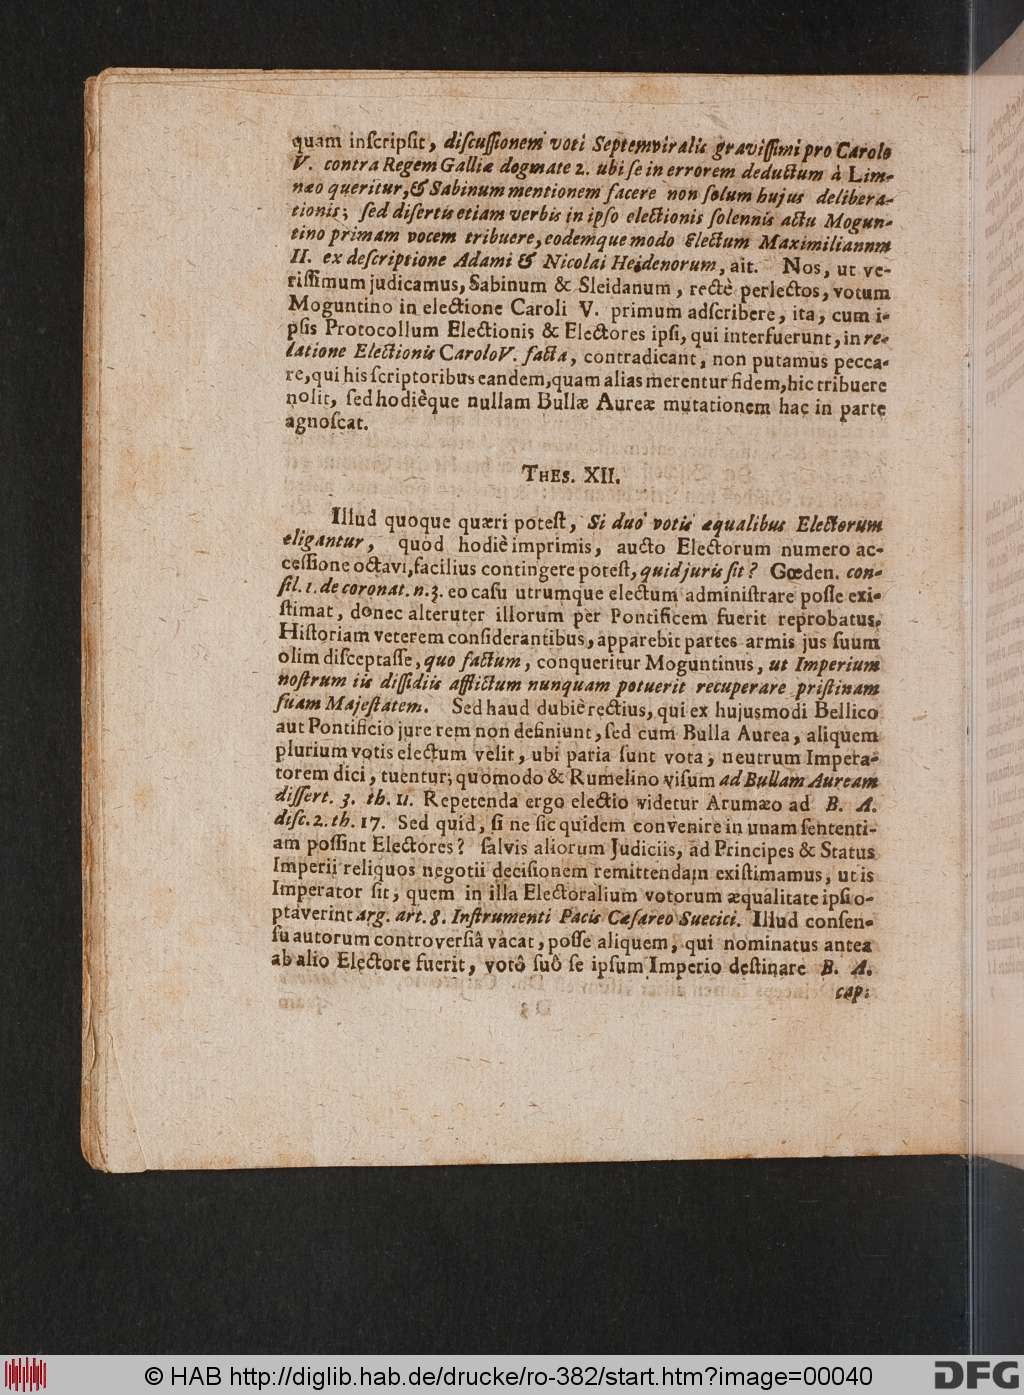 quam inſcripſit, diſcuſſionem voti Septemviralis graviſſimi pro Carolo
V. contra Regem Galliæ dogmate 2. ubi ſe in errorem deductum à Lim-
næo queritur, & Sabinum mentionem facere non ſolum hujus delibera-
tionis; ſed diſertis etiam verbis in ipſo electionis ſolennis actu Mogun-
tino primam vocem tribuere, eodemque modo Electum Maximilianum
II. ex deſcriptione Adami & Nicolai Heidenorum, ait. Nos, ut ve-
riſſimum judicamus, Sabinum & Sleidanum, rectè perlectos, votum
Moguntino in electione Caroli V. primum adſcribere, ita, cum i-
pſis Protocollum Electionis & Electores ipſi, qui interfuerunt, in re-
latione Electionis Carolo V. facta, contradicant, non putamus pecca-
re, qui his ſcriptoribus eandem, quam alias merentur fidem, hic tribuere
nolit, ſed hodièque nullam Bullæ Aureæ mutationem hac in parte
agnoſcat.
THES. XII.
Illud quoque quæri poteſt, Si duo votis æqualibus Electorum
eligantur, quod hodiè imprimis, aucto Electorum numero ac-
ceſſione octavi, facilius contingere poteſt, quid juris ſit? Gœden. con-
ſil. 1. de coronat. n. 3. eo caſu utrumque electum adminiſtrare poſſe exi-
ſtimat, donec alteruter illorum per Pontificem fuerit reprobatus.
Hiſtoriam veterem conſiderantibus, apparebit partes armis jus ſuum
olim diſceptaſſe, quo factum, conqueritur Moguntinus, ut Imperium
noſtrum iis diſſidiis afflictum nunquam potuerit recuperare priſtinam
ſuam Majeſtatem. Sed haud dubiè rectius, qui ex hujusmodi Bellico
aut Pontificio jure rem non definiunt, ſed cum Bulla Aurea, aliquem
plurium votis electum velit, ubi paria ſunt vota, neutrum Impera-
torem dici, tuentur; quomodo & Rumelino viſum ad Bullam Auream
diſſert. 3. th. 11. Repetenda ergo electio videtur Arumæo ad B. A.
diſc. 2. th. 17. Sed quid, ſi ne ſic quidem convenire in unam ſententi-
am poſſint Electores? ſalvis aliorum Judiciis, ad Principes & Status
Imperii reliquos negotii deciſionem remittendam exiſtimamus, ut is
Imperator ſit, quem in illa Electoralium votorum æqualitate ipſi o-
ptaverint arg. art. 8. Inſtrumenti Pacis Cæſareo Suecici. Illud conſen-
ſu autorum controverſiâ vacat, poſſe aliquem, qui nominatus antea
ab alio Electore fuerit, votô ſuô ſe ipſum Imperio deſtinare B. A.
cap:
© HAB http://diglib.hab.de/drucke/ro-382/start.htm?image=00040
DFG